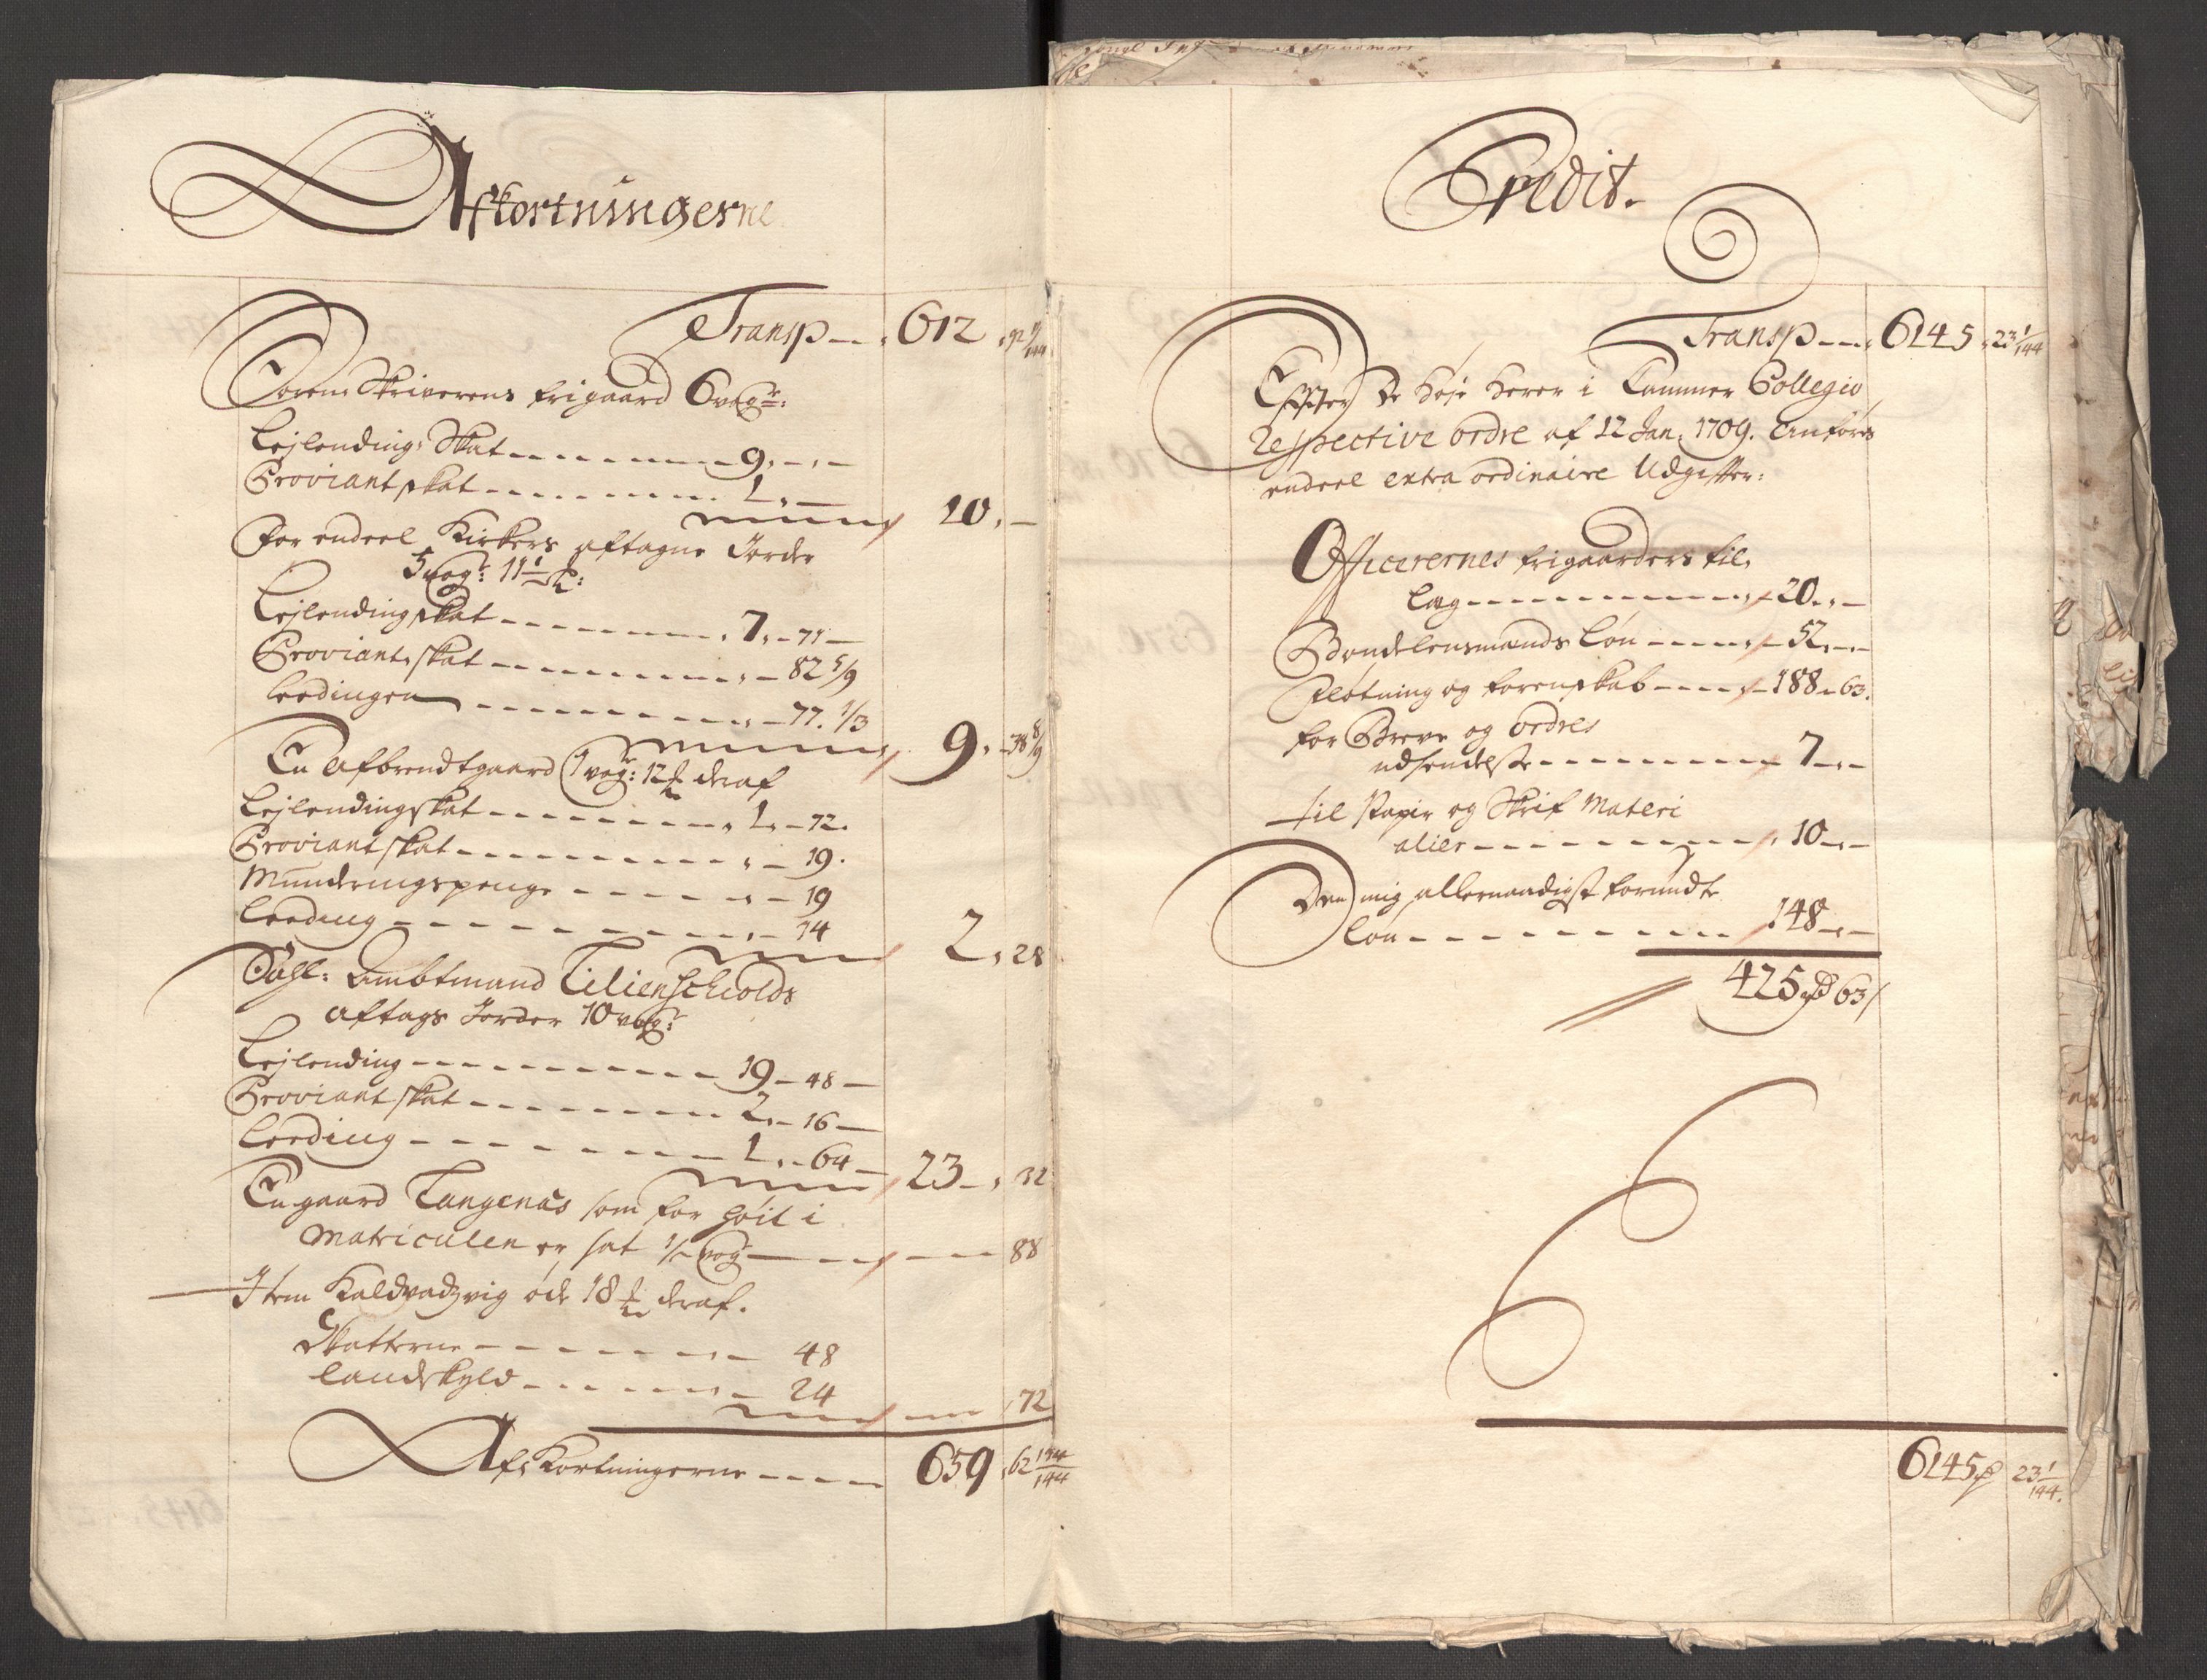 Afkortningerne
Transp 612 . 92
Soren Skriverens frigaard 6 vog:
Leilending: Skat 9
Proviantskat 1
10
for endeel Kirkers aftagne Jorder
5 vog: 11
Leilendingskat 7 71
Proviantskat 82 5/9
Leedingen 77. 1/3
9 38 8/9
En afbrendtgaard 1 vog: 12 deraf
Leilendingskat 1 72.
Proviantskat 19.
Munderingspenge 19
Leeding 14
2 . 28
Sahl: Ambtmand Lilienschiolds
aftags Jorder 10 vog:
Leilending 19 48
Proviantskat 2 16
Leeding 1 64
23 32
En gaard Langenæs som for høit i
Matriculen er sat 1/2 vog 88
Item Kaldvadzvig øde 18 deraf.
Skatterne 48
Landskyld 24
72
Afkortningerne 659 . 62 134/144
Credit.
Transp 6145 . 23 1/144
Effter de høje Herer i Cammer Collegio
Respective ordre af 12 Jan: 1709. Anføres
endeel extra ordinaire Udgiffter:
Officerernes frigaarders til
læg 20
Bondelensmands Løn 52
Fløtning og forenskab 188 63.
for Breve og ordres
udsendelse 7
til Papir og Skrif Materi
alier 10
Den mig allernaadigst forundte
Løn 148
425 63
6145 23 1/144.